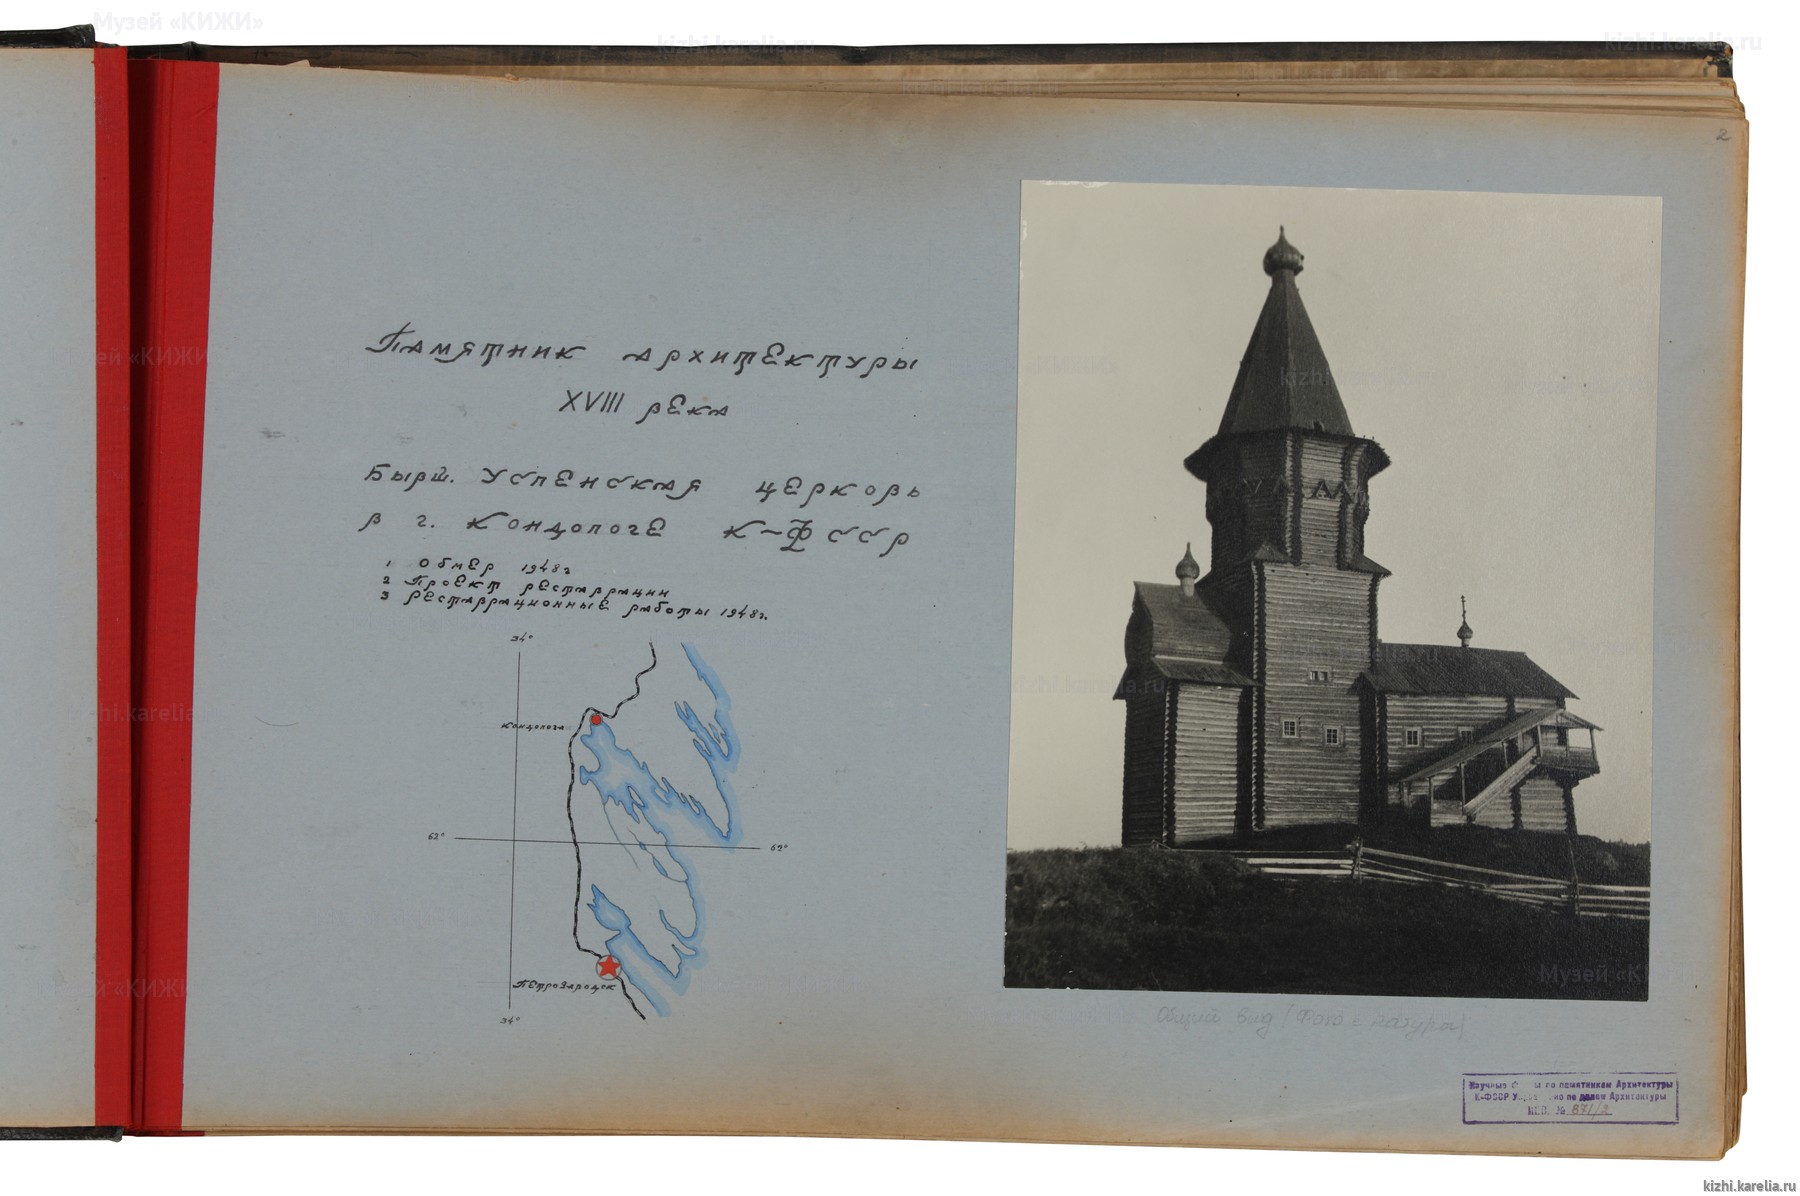 Музей «КИЖИ»
kizhi.karelia.ru
kizhi.karelia.ru
2
Памятник архитектуры
XVIII века
Бывш. Успенская церковь
в г. Кондопоге К-ФССР
1 Обмер 1948г
2 Проект реставрации
3 Реставрационные работы 1948г.
34°
Кондопога
62°
62°
Петрозаводск
34°
Общий вид (Фото с натуры)
Научные по памятникам Архитектуры
К-ФССР по делам Архитектуры
ИНВ. № 871/2
kizhi.karelia.ru